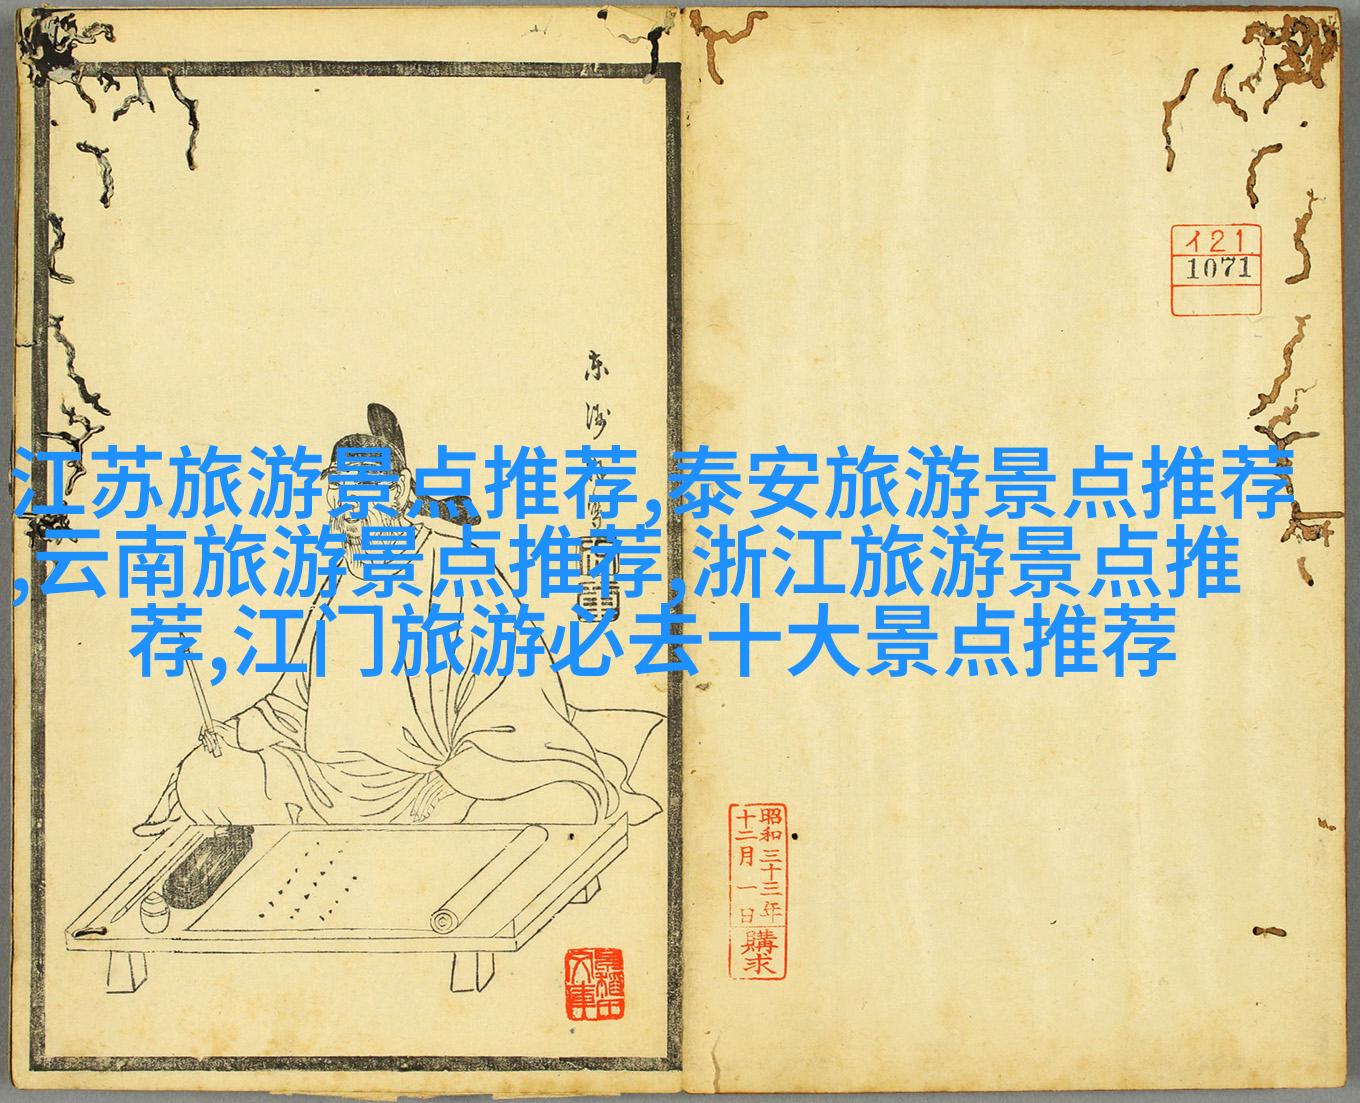 江苏旅游景点推荐,泰安旅游景点推荐
,云南旅游景点推荐,浙江旅游景点推
荐,江门旅游必去十大景点推荐
イ21
1071
昭和三十三年
十二月一日
購求